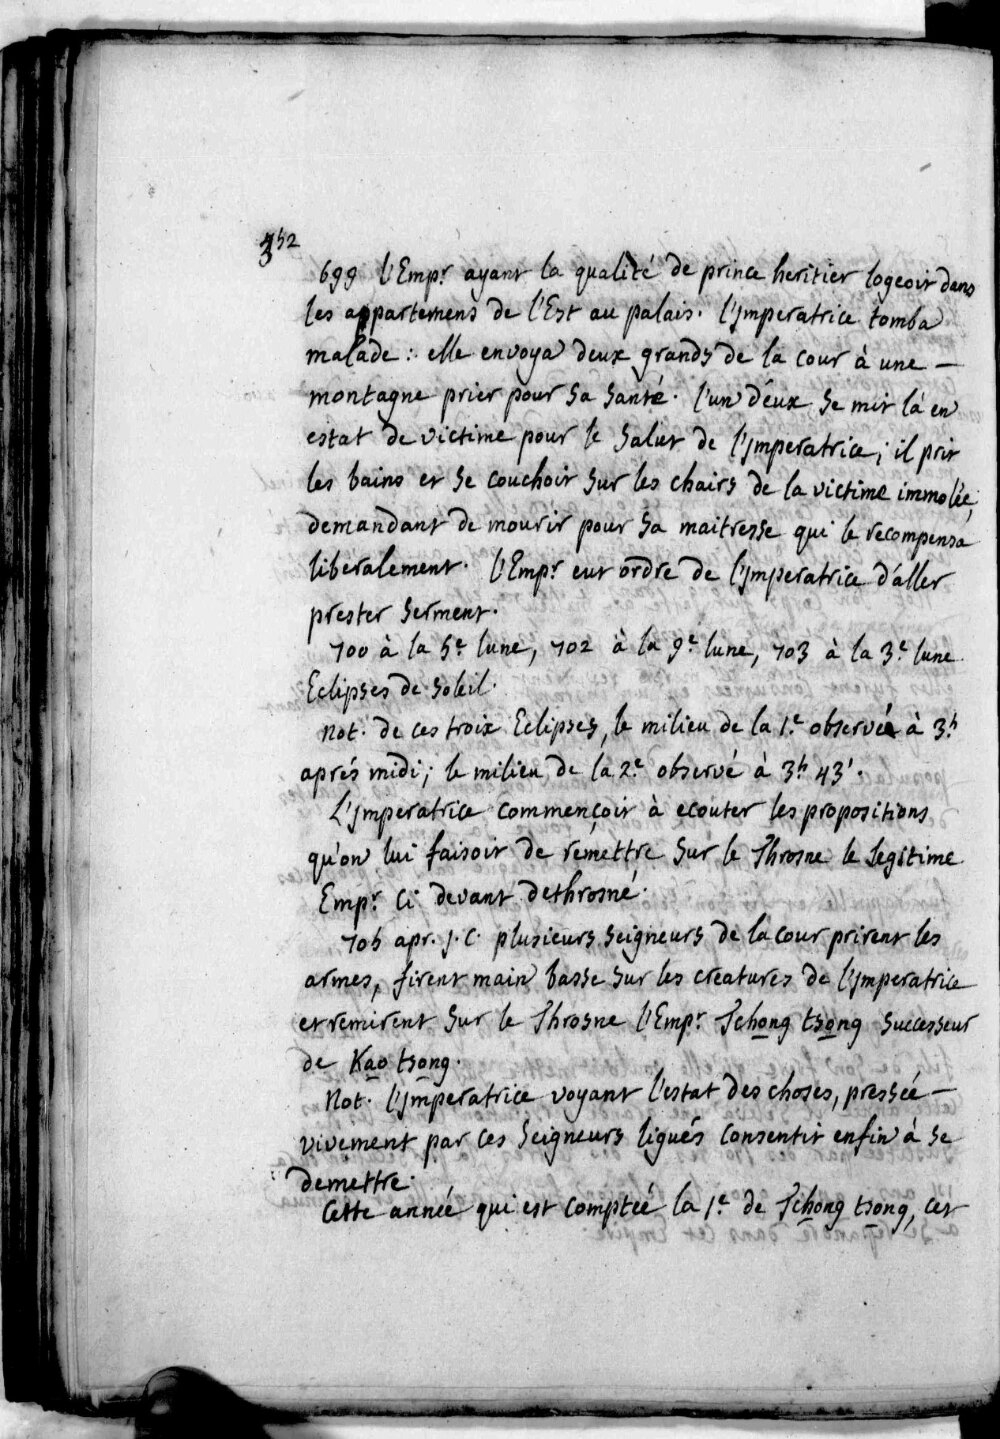 352
699 l'Emp.r ayant la qualité de prince heritier logeoit dans
les appartemens de l'Est au palais. l'jmperatrice tomba
malade : elle envoya deux grands de la cour à une —
montagne prier pour sa santé. l'un d'eux se mit là en
estat de victime pour le salut de l'jmperatrice ; il prit
les bains et se couchoit sur les chairs de la victime immolée,
demandant de mourir pour sa maitresse qui le recompensa
liberalement. l'Emp.r eut ordre de l'jmperatrice d'aller
prester serment.
700 à la 5.e lune, 702 à la 9.e lune, 703 à la 3.e lune
Eclipses de soleil.
Not. de ces troix Eclipses, le milieu de la 1.e observée à 3.h
aprés midi ; le milieu de la 2.e observé à 3.h 43'.
L'jmperatrice commençoit à ecouter les propositions
qu'on lui faisoit de remettre sur le Throsne le legitime
Emp.r ci devant dethrosné.
705 apr. j. C. plusieurs seigneurs de la cour prirent les
armes, firent main basse sur les creatures de l'jmperatrice
et remirent sur le Throsne l'Emp.r Tchong tsong successeur
de Kao tsong.
Not. l'jmperatrice voyant l'estat des choses, pressée —
vivement par ces seigneurs ligués consentit enfin à se
demettre.
Cette année qui est comptée la 1.e de Tchong tsong, cet